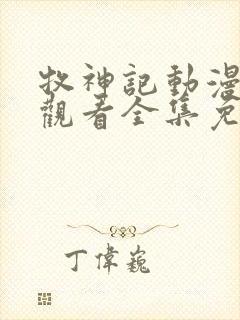 牧神記動漫
觀看全集免
丁偉巍